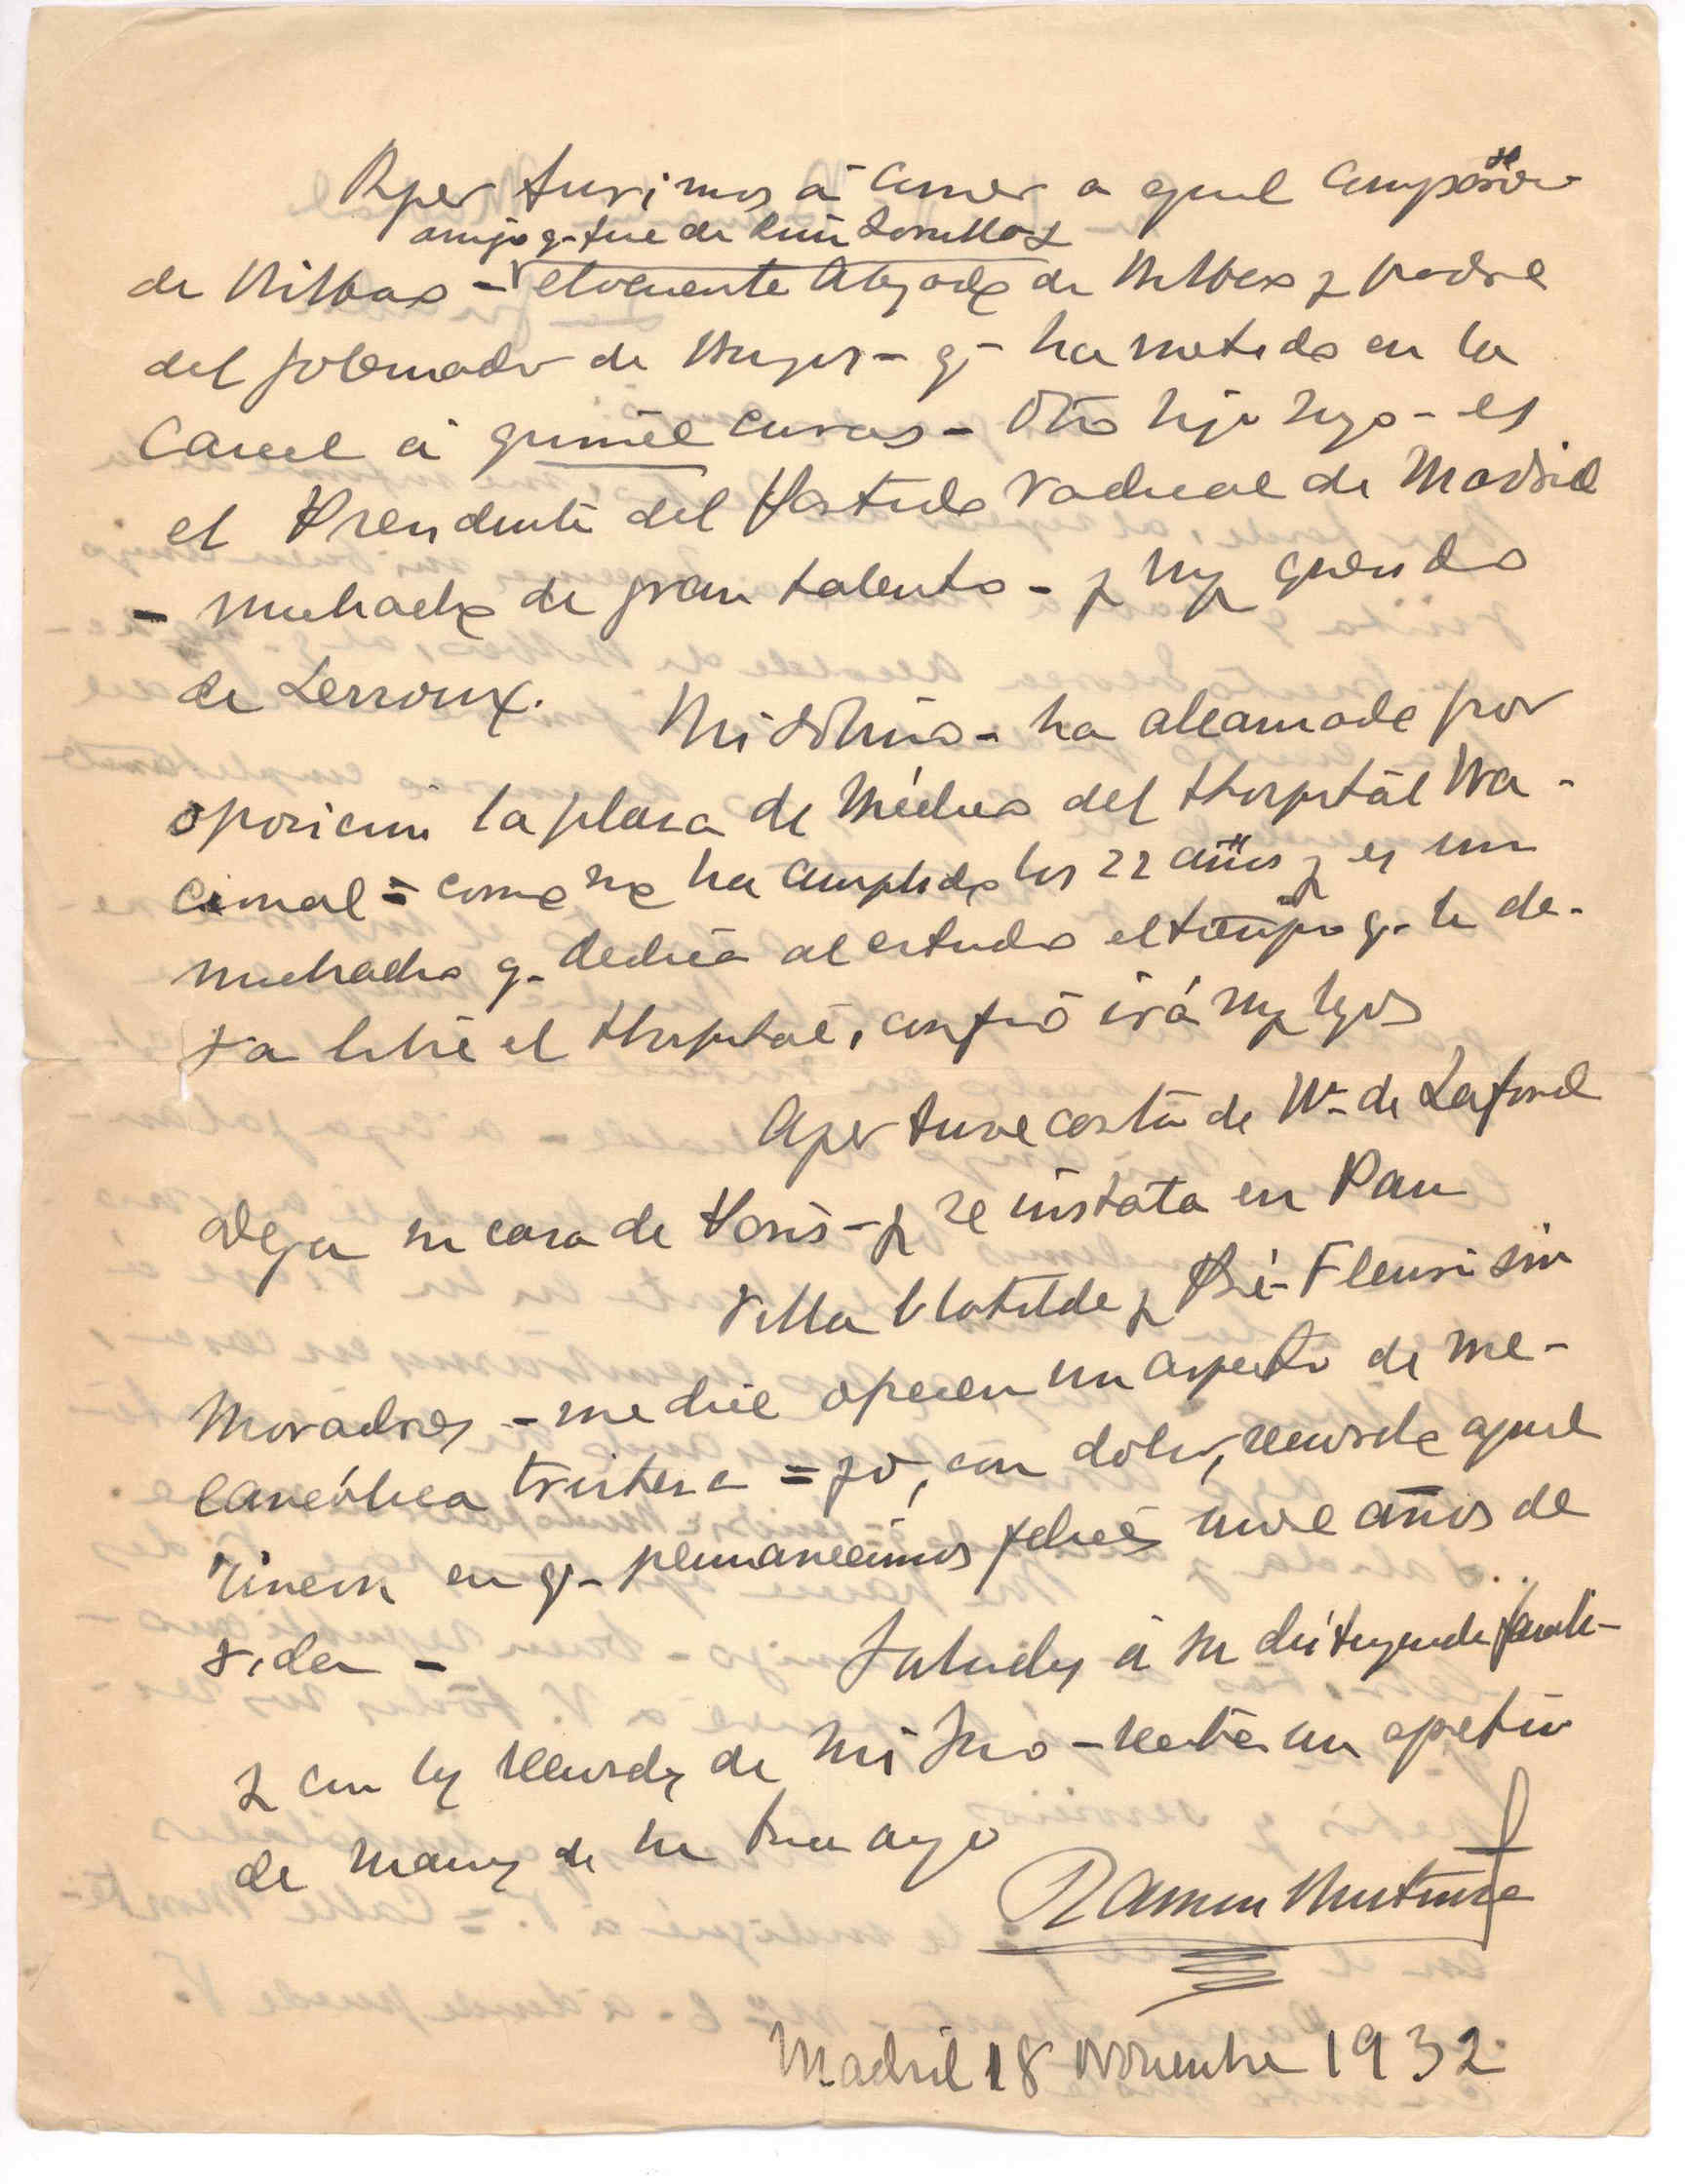 Ayer tuvimos á comer a aquel
amigo q- fue de Ruiz Zorrilla
de Bilbao - elocuente Abogado de Bilbao y padre
del Gobernador de Burgos - q- ha metido en la
Carcel á quince curas - Otro hijo suyo - es
el Presidente del Partido radical de Madrid
- muchacho de gran talento - y muy querido
de Lerroux. Mi sobrino - ha alcanzado por
oposicion la plaza de Médico del Hospital Na-
cional = como no ha cumplido los 22 años y es un
muchacho q- dedica al estudio el tiempo q- le de-
ja libre el Hospital, confio irá muy lejos
Ayer tuve carta de Mr de Laford
deja su casa de Paris - y se instala en Pau
Villa Clotilde y Pré-Fleuri sin
moradores - me dice ofrecen un aspecto de me-
lancólica tristeza = yo, con dolor, recuerdo aquel
rincon en q- permanecimos felices nueve años de
vida - Saludos á su distinguida famili-
y con los recuerdos de mi Sra - reciba un apreton
de manos de su buen amigo
Ramon
Madrid 18 Noviembre 1932